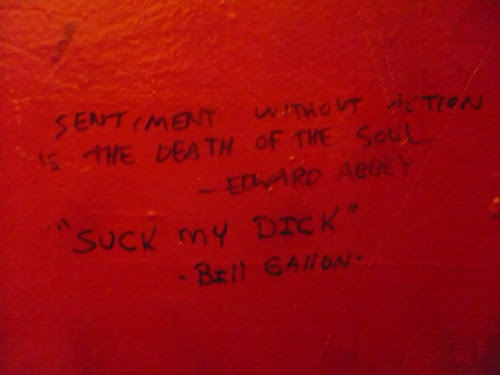 SENTIMENT WITHOUT ACTION
IS THE DEATH OF THE SOUL
- EDWARD ABBEY
"SUCK MY DICK"
- BIll GAllON -